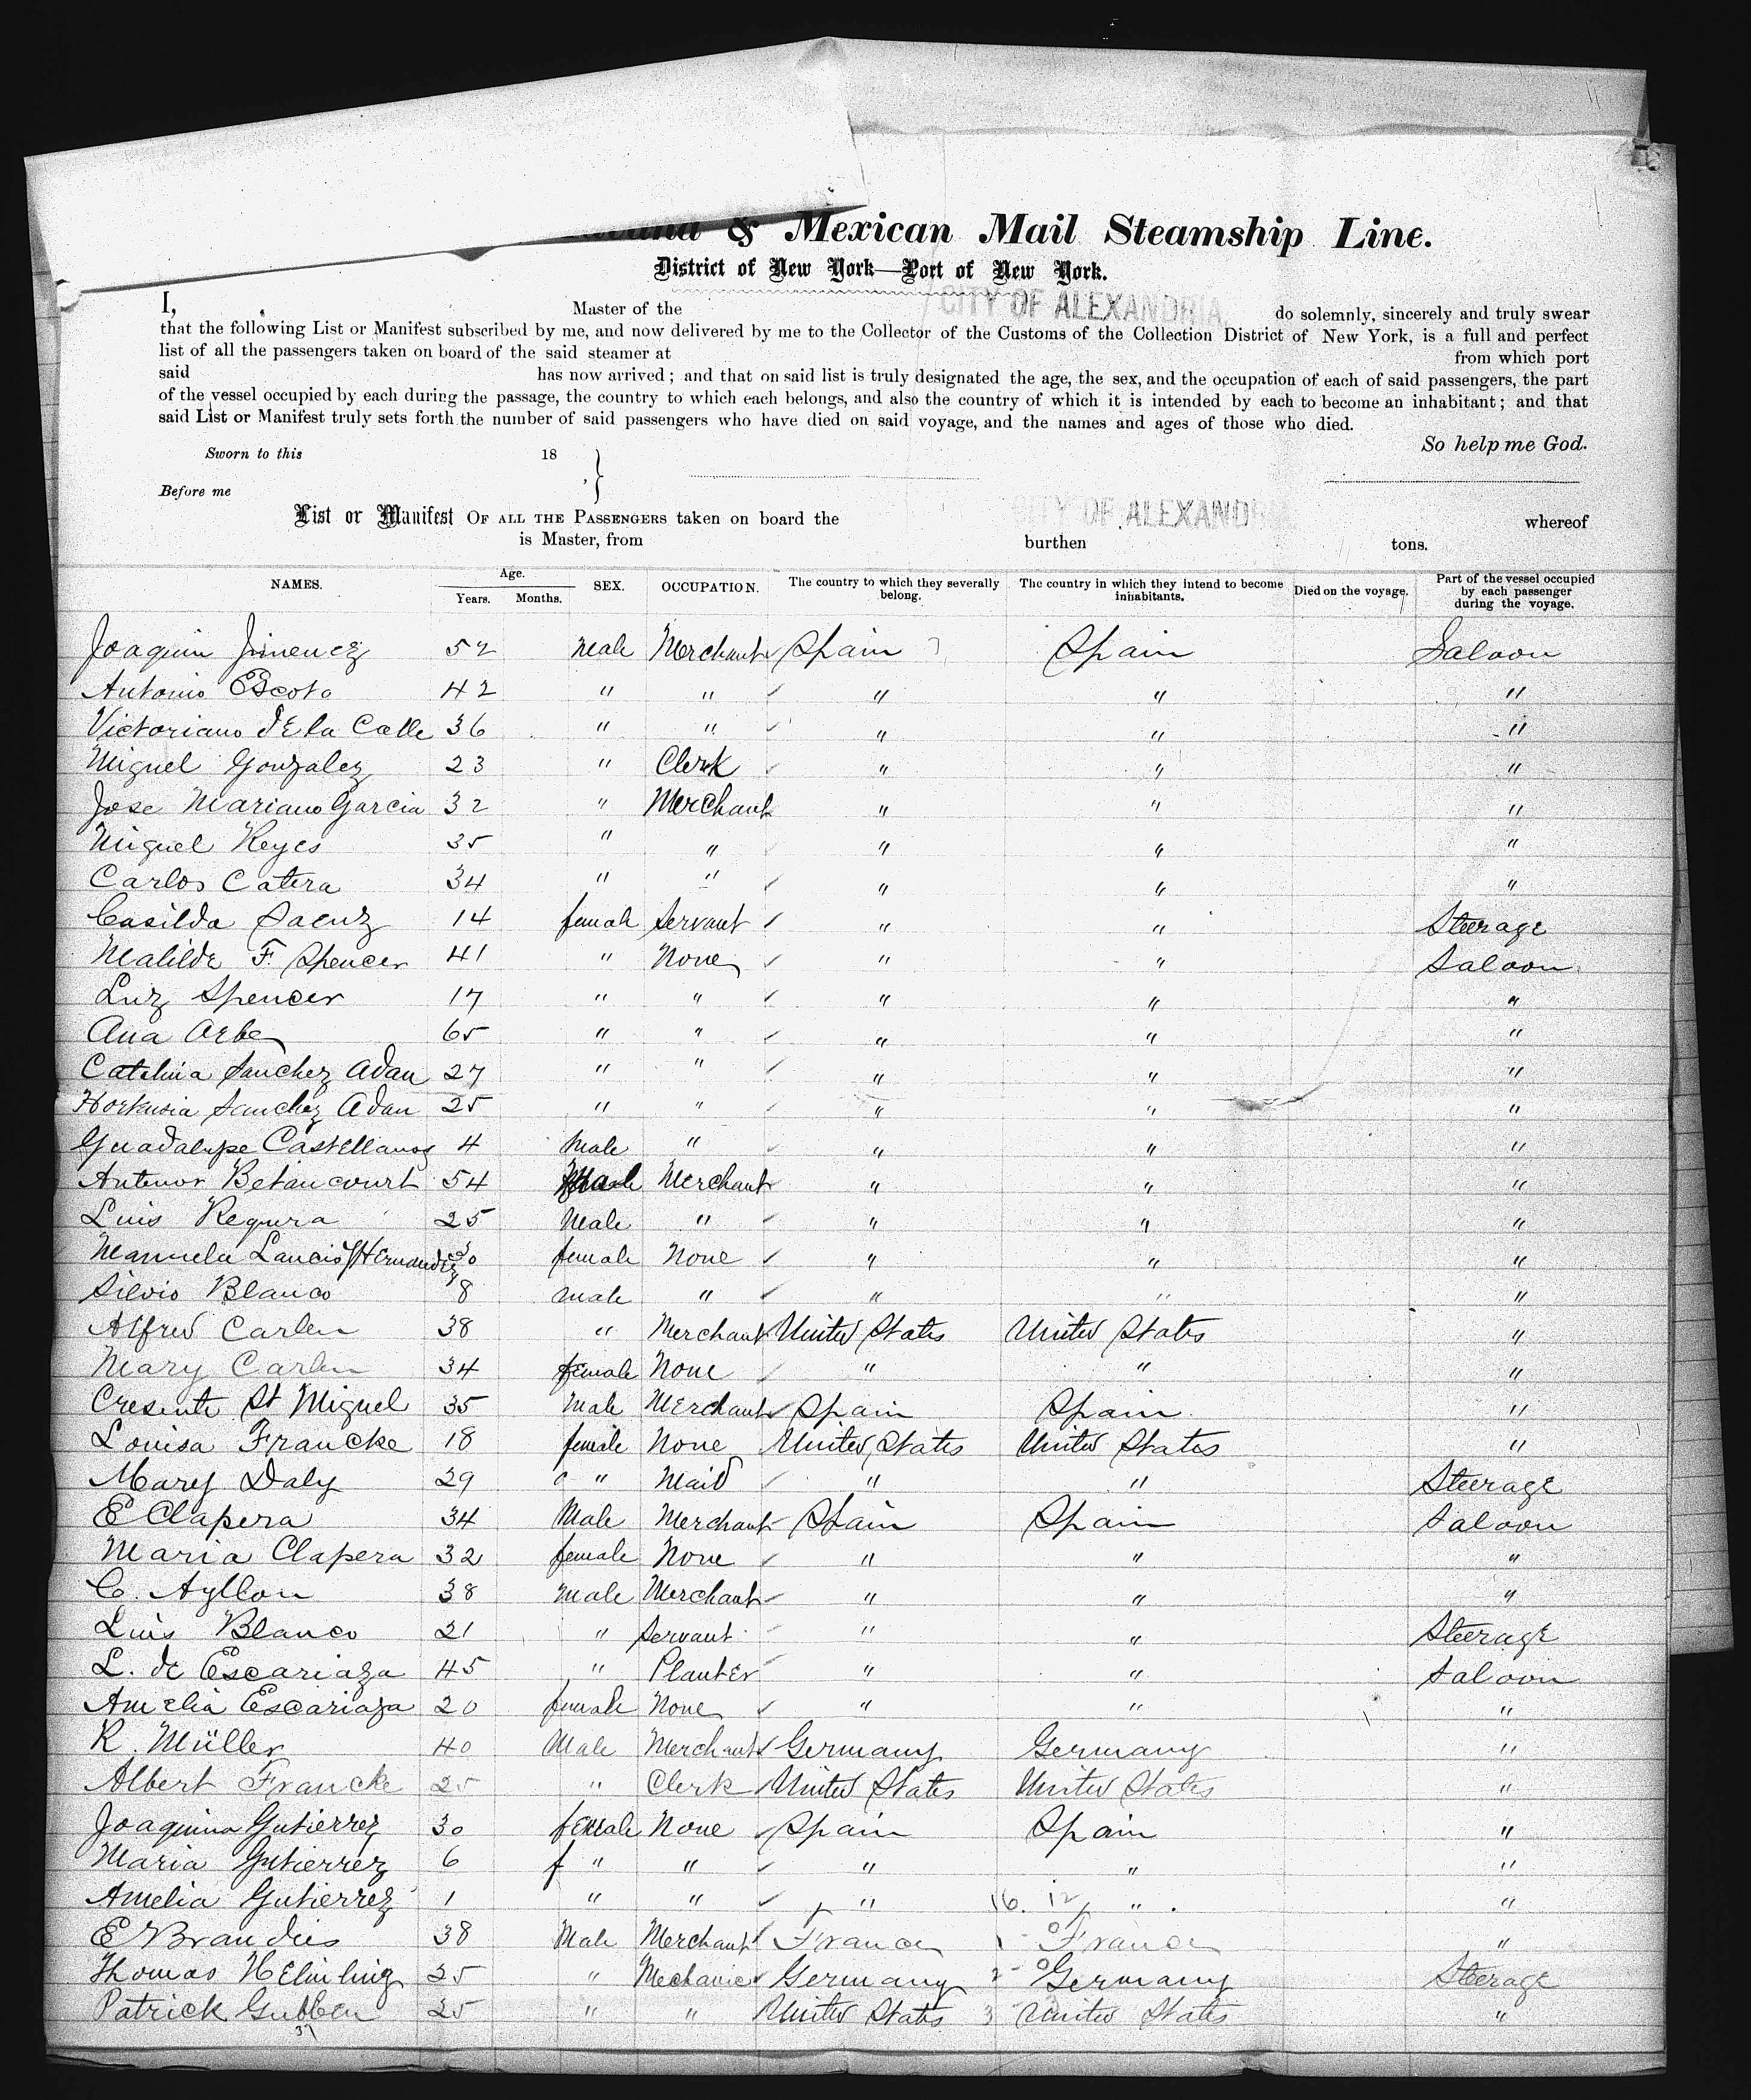 & Mexican Mail Steamship Line.
District of New York—Port of New York.
CITY OF ALEXANDRIA
I, Master of the do solemnly, sincerely and truly swear
that the following List or Manifest subscribed by me, and now delivered by me to the Collector of the Customs of the Collection District of New York, is a full and perfect
list of all the passengers taken on board of the said steamer at from which port
said has now arrived; and that on said list is truly designated the age, the sex, and the occupation of each of said passengers, the part
of the vessel occupied by each during the passage, the country to which each belongs, and also the country of which it is intended by each to become an inhabitant; and that
said List or Manifest truly sets forth the number of said passengers who have died on said voyage, and the names and ages of those who died.
So help me God.
Sworn to this 18
Before me
List or Manifest OF ALL THE PASSENGERS taken on board the CITY OF ALEXANDRIA whereof
is Master, from burthen tons.
NAMES. Age. Years. Months. SEX. OCCUPATION. The country to which they severally belong. The country in which they intend to become inhabitants. Died on the voyage. Part of the vessel occupied by each passenger during the voyage.
Joaquin Jimenez 52 Male Merchant Spain Spain Saloon
Antonio Escoto 42 " " " " "
Victoriano de la Calle 36 " " " " "
Miguel Gonzalez 23 " Clerk " " "
Jose Mariano Garcia 32 " Merchant " " "
Miguel Reyes 35 " " " " "
Carlos Catera 34 " " " " "
Casilda Saenz 14 female Servant " " Steerage
Matilde F. Spencer 41 " None " " Saloon
Luz Spencer 17 " " " " "
Ana Orbe 65 " " " " "
Catalina Sanchez Adan 27 " " " " "
Hortensia Sanchez Adan 25 " " " " "
Guadalupe Castellanos 4 Male " " " "
Antenor Betancourt 54 Male Merchant " " "
Luis Requra 25 Male " " " "
Manuela Hernandez 30 female None " " "
Silvio Blanco 8 male " " " "
Alfred Carlen 38 " Merchant United States United States "
Mary Carlen 34 female None " " "
Cresente St Miguel 35 Male Merchant Spain Spain "
Louisa Francke 18 female None United States United States "
Mary Daly 29 " Maid " " Steerage
E Clapera 34 Male Merchant Spain Spain Saloon
Maria Clapera 32 female None " " "
C. Ayllon 38 male Merchant " " "
Luis Blanco 21 " Servant " " Steerage
L. de Escariaza 45 " Planter " " Saloon
Amelia Escariaza 20 female None " " "
R. Müller 40 Male Merchant Germany Germany "
Albert Francke 25 " Clerk United States United States "
Joaquina Gutierrez 30 female None Spain Spain "
Maria Gutierrez 6 f " " " " "
Amelia Gutierrez 1 " " " 16. 12 " "
E Brandies 38 Male Merchant France 1 France "
Thomas 25 " Mechanic Germany 2 Germany Steerage
Patrick 25 " " United States 3 United States "
37